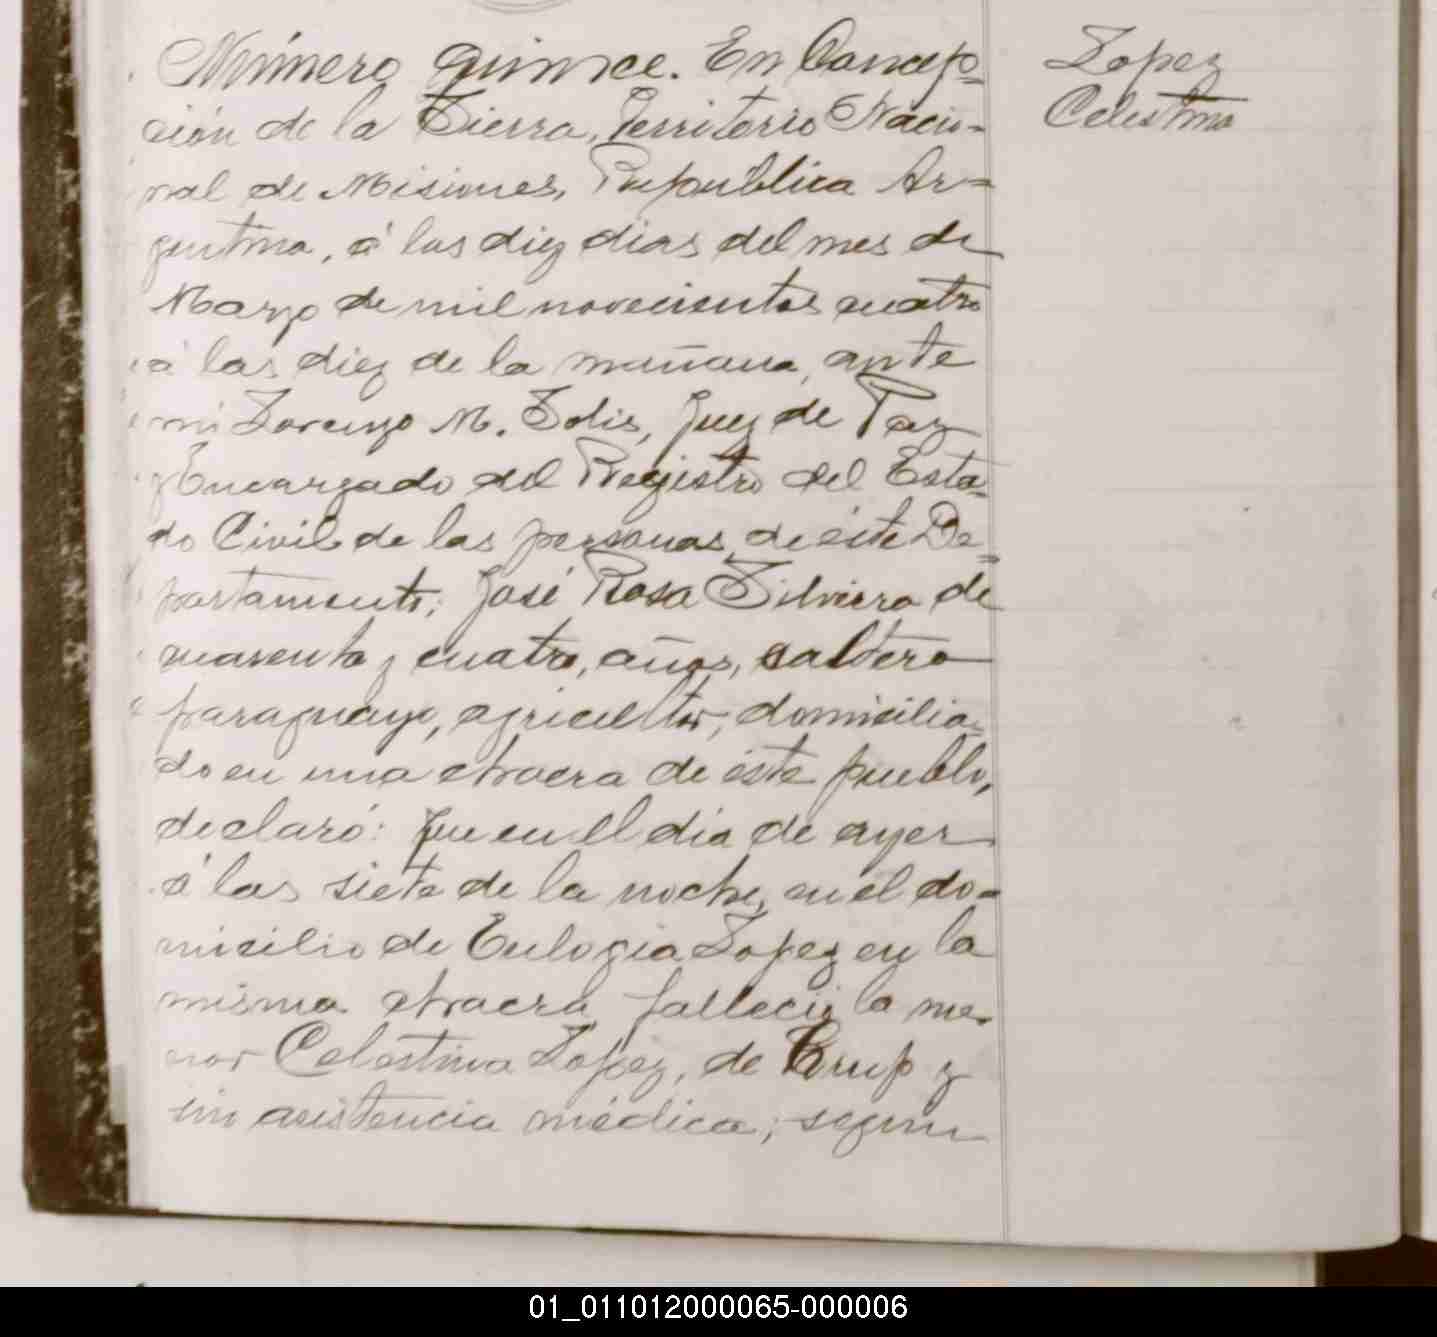 Número quince. En Concep-
ción de la Sierra, Territorio Nacio-
nal de Misiones, República Ar-
gentina, á los diez dias del mes de
Marzo de mil novecientos cuatro
á las diez de la mañana, ante
mi Lorenzo M. Solis, Juez de Paz
y Encargado del Registro del Esta-
do Civil de las personas de éste De-
partamento; José Rosa Silviera de
cuarenta y cuatro, años, soltero
paraguayo, agricultor, domicilia-
do en una chacra de éste pueblo,
declaró: Que en el dia de ayer
á las siete de la noche, en el do-
micilio de Eulogia Lopez en la
misma chacra falleció la me-
nor Celestina Lopez, de Crup y
sin asistencia médica; segun
Lopez
Celestina
01_011012000065-000006